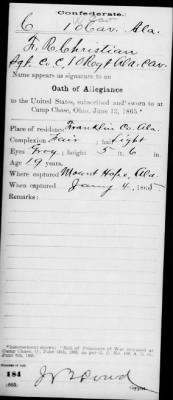 Confederate.
C 10 Cav. Ala.
F. R. Christian
Sgt. Co. C, 10 Regt Ala. Cav.
Name appears as signature to an
Oath of Allegiance
to the United States, subscribed and sworn to at
Camp Chase, Ohio, June 13, 1865.*
Place of residence Franklin Co. Ala.
Complexion Fair ; hair Light
Eyes Gray ; height 5 ft. 6 in.
Age 19 years.
Where captured Mount Hope, Ala.
When captured Jany 4, 1865
Remarks:
184
Copyist.